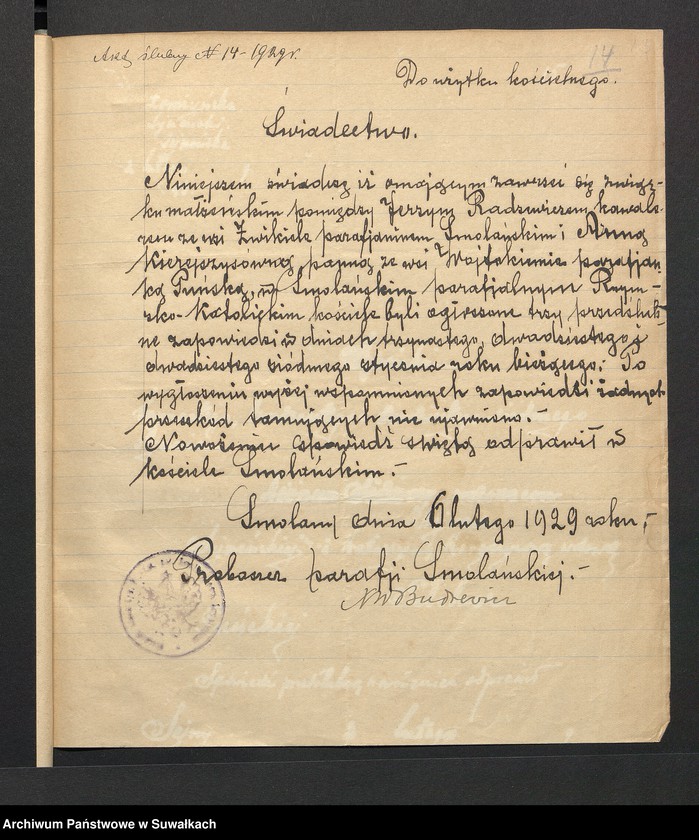 Akt ślubny № 14-1929r.
14
Do użytku kościelnego.
Świadectwo.
Niniejszem świadczę iż o mającym zawrzeć się związ-
ku małżeńskim pomiędzy Jerzym Radzewiczem kawale-
rem ze wsi Żwikiele parafjaninem Smolańskim i Anną
Kierejszysówną, panną ze wsi Wojtokiemie parafjan-
ką Puńską, w Smolańskim parafjalnym Rzym-
sko-Katolickim kościele byli ogłoszone trzy przedślub-
ne zapowiedzi w dniach trzynastego, dwudziestego i
dwudziestego siódmego stycznia roku bieżącego; Po
wygłoszeniu wyżej wspomnionych zapowiedzi żadnych
przeszkód tamujących nie ujawniono.-
Nowożeniec spowiedź świętą odprawił w
kościele Smolańskim.-
Smolany dnia 6 lutego 1929 roku,-
Proboszcz parafji Smolańskiej.-
Budrewicz
Sejny lutego
Archiwum Państwowe w Suwałkach